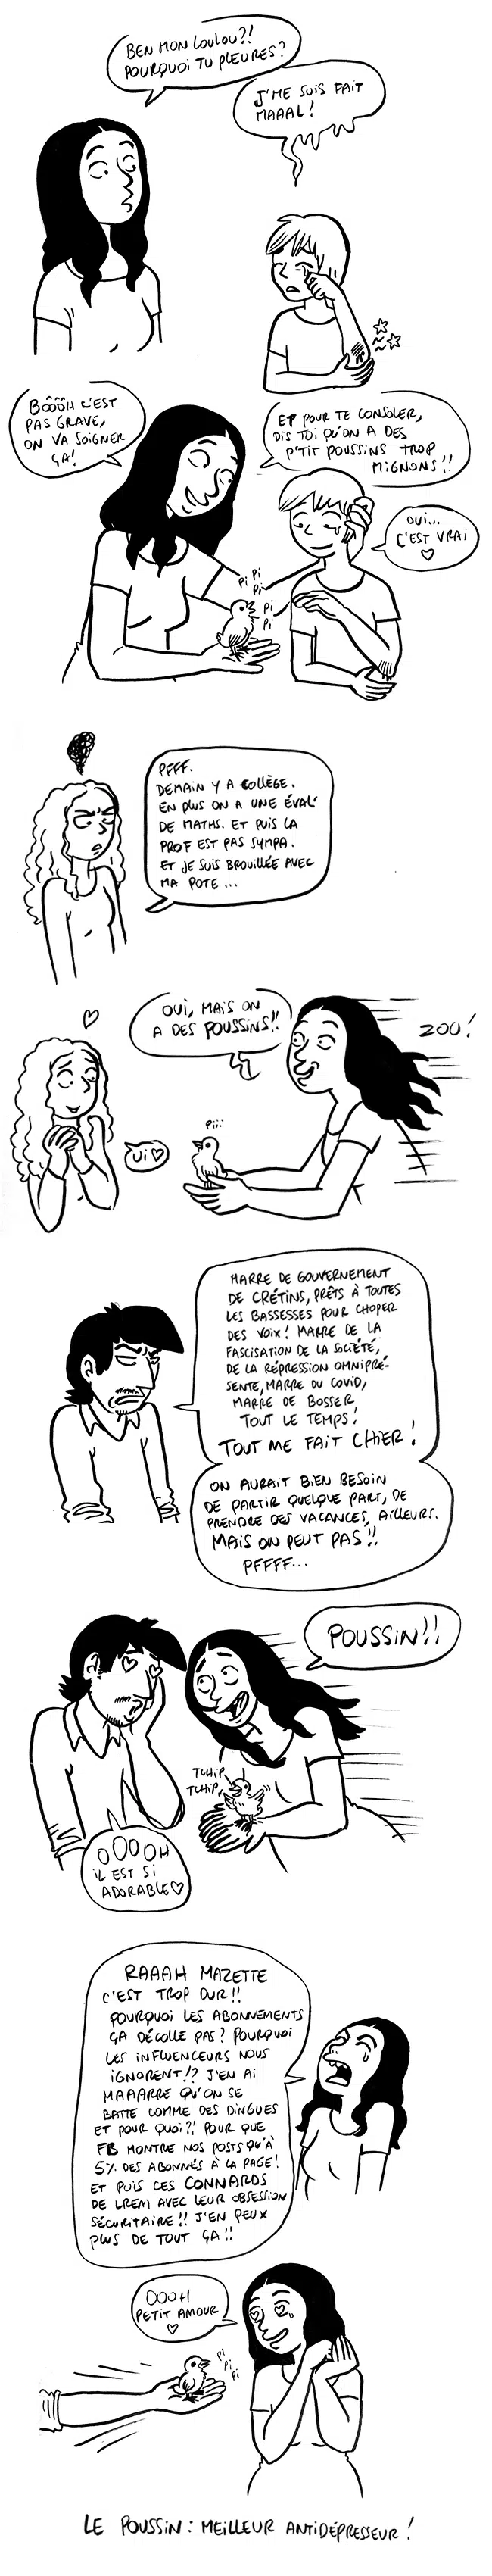 BEN MON LOULOU?!
POURQUOI TU PLEURES?
J'ME SUIS FAIT
MAAAL!
BÔÔÔH C'EST
PAS GRAVE,
ON VA SOIGNER
ÇA!
ET POUR TE CONSOLER,
DIS TOI QU'ON A DES
P'TIT POUSSINS TROP
MIGNONS!!
OUI...
C'EST VRAI
♡
PI PI
PI
PI
PI
PFFF.
DEMAIN Y A COLLÈGE.
EN PLUS ON A UNE ÉVAL'
DE MATHS. ET PUIS LA
PROF EST PAS SYMPA.
ET JE SUIS BROUILLÉE AVEC
MA POTE...
OUI, MAIS ON
A DES POUSSINS!!
ZOU!
PIII
UI ♡
MARRE DE GOUVERNEMENT
DE CRÉTINS, PRÊTS À TOUTES
LES BASSESSES POUR CHOPER
DES VOIX! MARRE DE LA
FASCISATION DE LA SOCIÉTÉ,
DE LA RÉPRESSION OMNIPRÉ-
SENTE, MARRE DU COVID,
MARRE DE BOSSER
TOUT LE TEMPS!
TOUT ME FAIT CHIER!
ON AURAIT BIEN BESOIN
DE PARTIR QUELQUE PART, DE
PRENDRE DES VACANCES, AILLEURS.
MAIS ON PEUT PAS!!
PFFFF...
POUSSIN!!
TCHIP
TCHIP
OOOOH
IL EST SI
ADORABLE ♡
RAAAH MAZETTE
C'EST TROP DUR!!
POURQUOI LES ABONNEMENTS
ÇA DÉCOLLE PAS? POURQUOI
LES INFLUENCEURS NOUS
IGNORENT!? J'EN AI
MAAARRE QU'ON SE
BATTE COMME DES DINGUES
ET POUR QUOI?! POUR QUE
FB MONTRE NOS POSTS QU'À
5% DES ABONNÉS À LA PAGE!
ET PUIS CES CONNARDS
DE LREM AVEC LEUR OBSESSION
SÉCURITAIRE!! J'EN PEUX
PLUS DE TOUT ÇA!!
OOOH
PETIT AMOUR
♡
PI
PI
PI
LE POUSSIN: MEILLEUR ANTIDÉPRESSEUR!